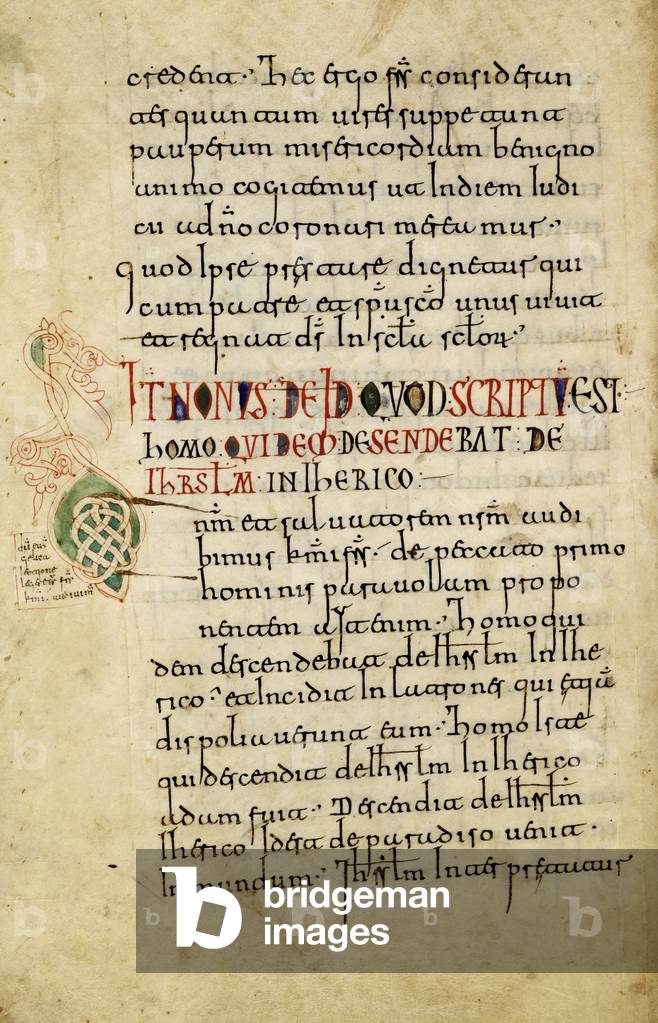 credent·' Hec ergo fr̄s consideran
tes quantum uires suppetunt
pauperum misericordiam benigno
animo cogitemus ut In diem Iudi
cii ad n̄o coronari mereamus·'
quod Ipse prestare dignetur qui
cum patre et sp̄u sc̄o unus uiuit
et regnat d̄s In sc̄la sc̄lor·'
IT NONUS DE ID QUOD SCRIPTU EST
HOMO QUIDEM DESENDEBAT DE
IHRSLM IN IHERICO
n̄m et saluatorem nr̄m audi
bimus km̄i fr̄s· de peccato primo
hominis parauolam propo
nentem enim·' Homo qui
dem descendebat de Ihrslm In Ihe
rico·' et Incidit In latrones qui
dispoliauerunt eum·' Homo Iste
qui descendit de Ihrslm In Iherico
adam fuit·' Descendit de Ihrslm
Iherico Idest de paradiso uenit·
In mundum·' Ihrslm Interpretatur
gelica
lectione
fr̄s
km̄i audiuim
bridgeman
images